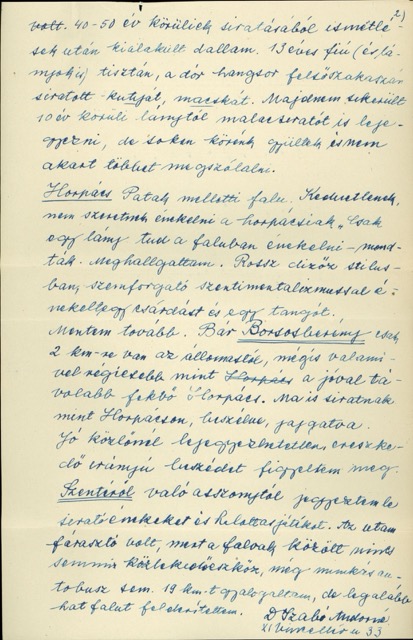 2)
volt. 40-50 év körüliek siratásából ismétlé-
sek után kialakult dallam. 13 éves fiú (és lá-
nyok is) tisztán, a dór hangsor felsőszakaszán
siratott kutyát, macskát. Majdnem sikerült
10 év körüli lánytól malacsiratót is leje-
gyezni, de sokan körénk gyűltek és nem
akart többet megszólalni.
Horpács Patak melletti falu. Kedvetlenek,
nem szeretnek énekelni a horpácsiak. "Csak
egy lány tud a faluban énekelni - mond-
ták. Meghallgattam. Rossz dizőz stílus-
ban, szemforgató szentimentalizmussal é-
nekelt egy csárdást és egy tangót.
Mentem tovább. Bár Borsosberény csak
2 km-re van az állomástól, mégis valami-
vel régiesebb mint Horpács a jóval tá-
volabb fekvő Horpács. Ma is siratnak
mint Horpácson, beszélve, jajgatva.
Jó közlőnél lejegyezhetetlen, ereszke-
dő irányú beszédet figyeltem meg.
Szentéről való asszonytól jegyeztem le
sirató énekeket és halottasjátékot. Az utam
fárasztó volt, mert a falvak között nincs
semmi közlekedőeszköz, még munkás au-
tobusz sem. 19 km-t gyalogoltam, de legalább
hat falut felderítettem.
D Szabó
33